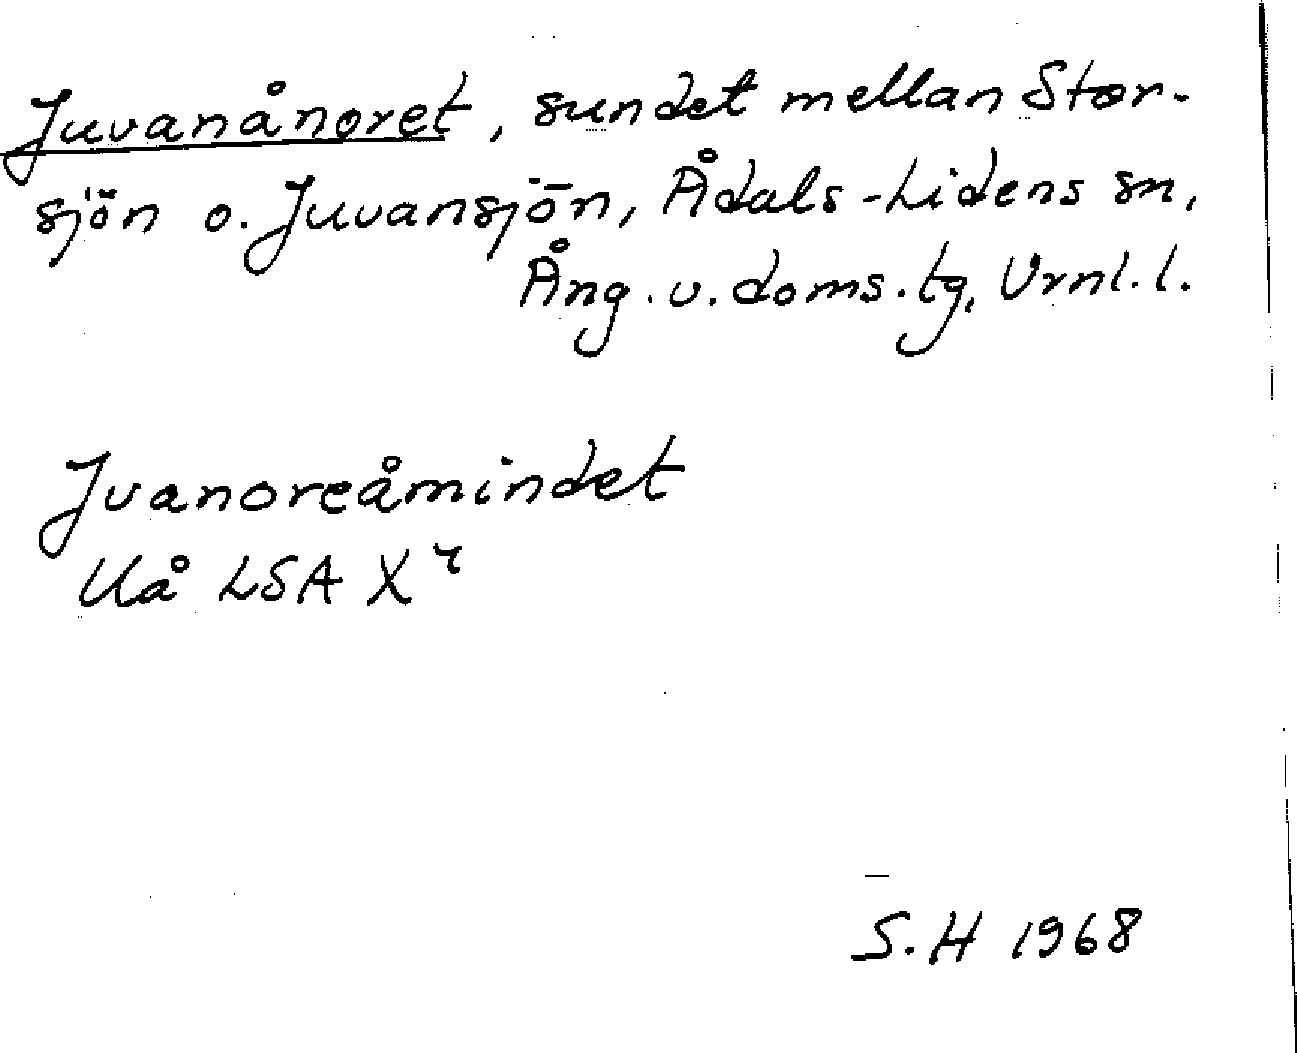 Juvanånoret, sundet mellan Stor-
sjön o. Juvansjön, Ådals-Lidens sn,
Ång. v. doms. tg, Vrnl. l.
Jvanoreåmindet
Uå LSA X
S.H 1968